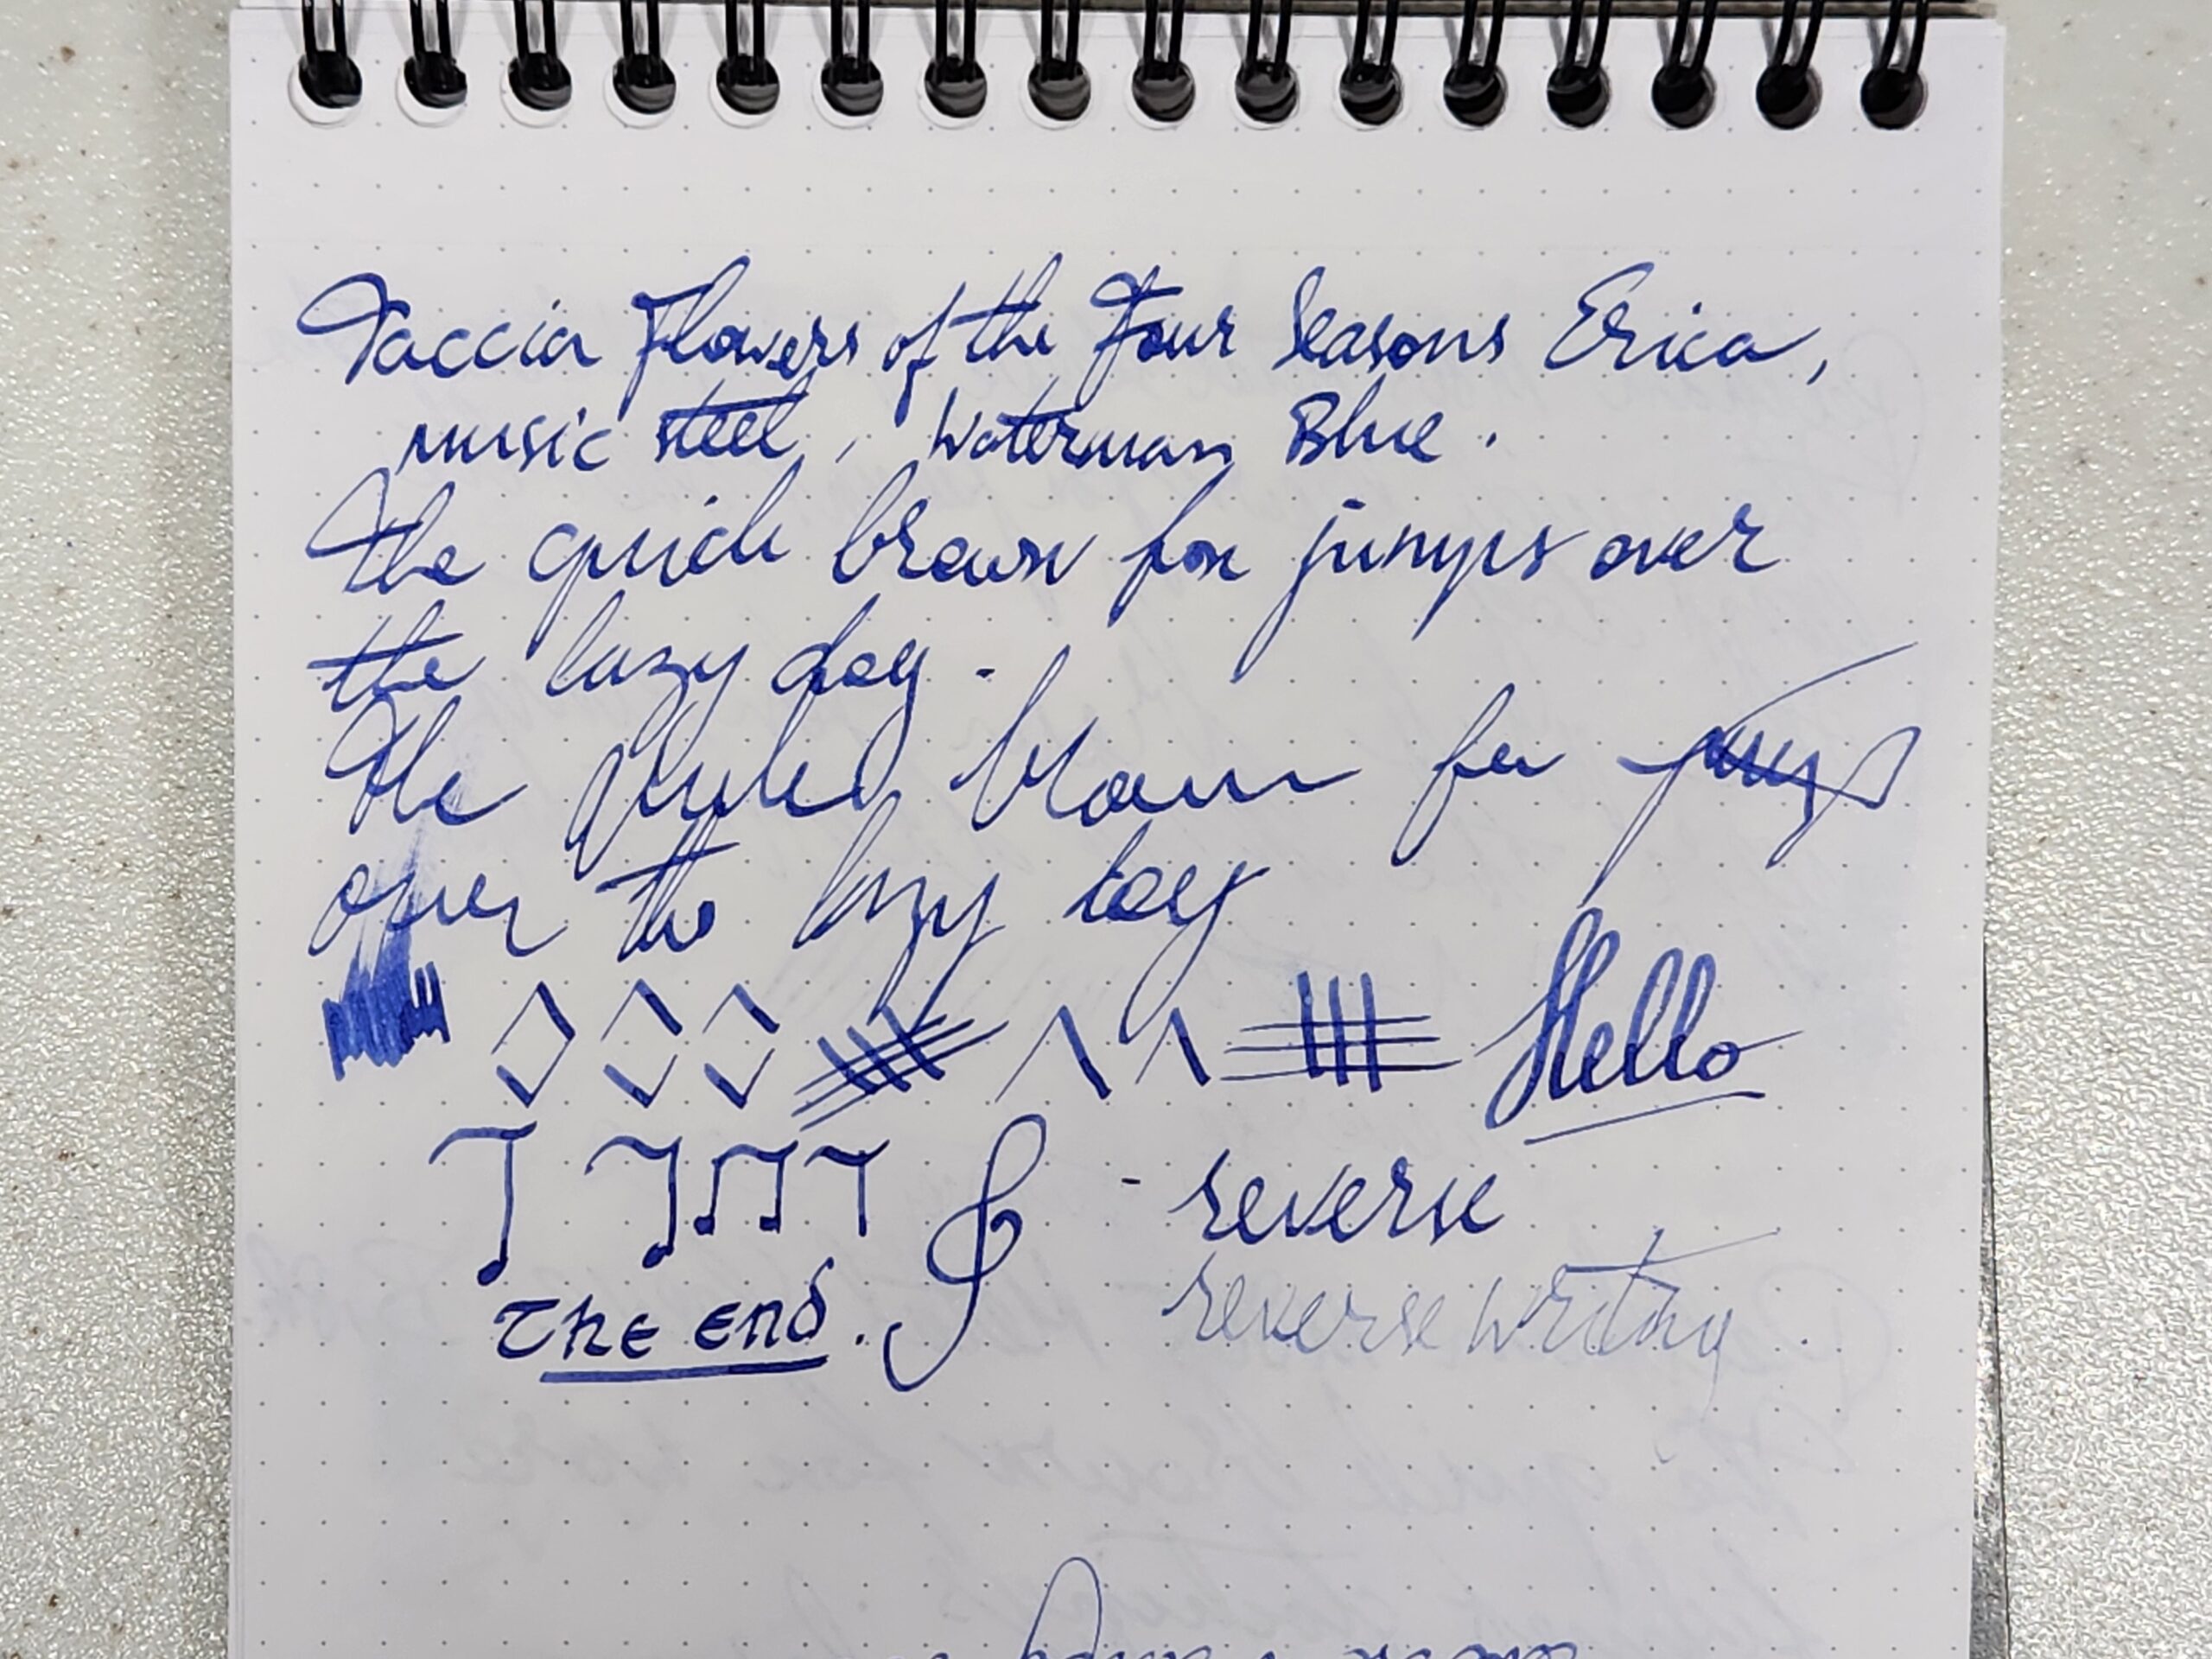 Taccia Flowers of the Four Seasons Erica,
music steel, Waterman Blue.
The quick brown fox jumps over
the lazy dog.
The quick brown fox jumps
over the lazy dog
Hello
- reverse
reverse writing.
The end.